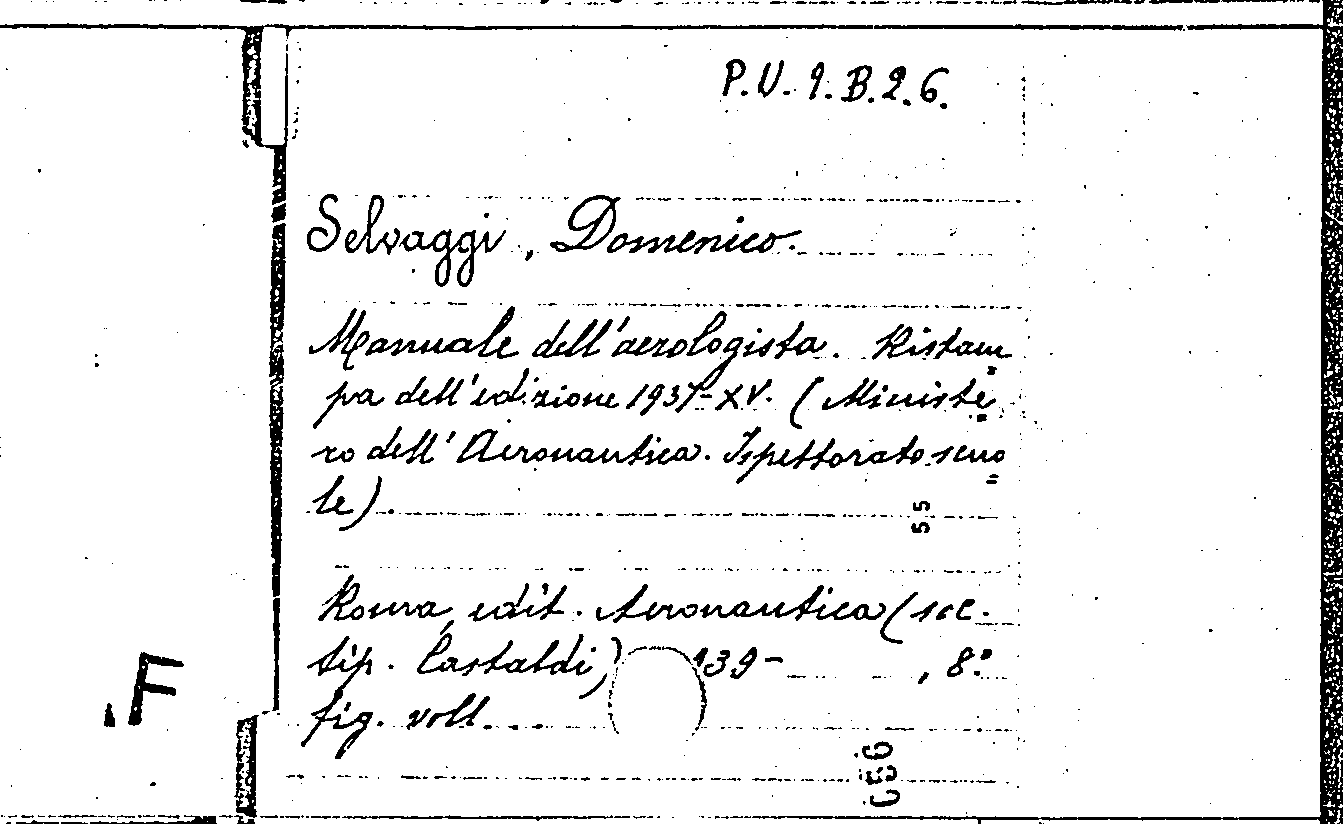 P.V. 1.B.2.6.
Selvaggi, Domenico.
Manuale dell'aerologista. Ristam=
pa dell'edizione 1937-XV. (Ministe=
ro dell'Aeronautica. Ispettorato scuo=
le).
55
Roma, edit. Aeronautica (soc.
tip. Castaldi,) 939- , 8°
fig. voll.
.F